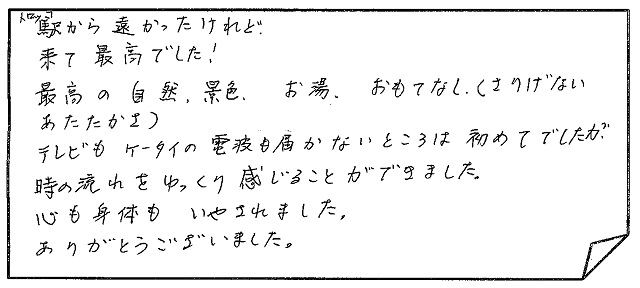 トロッコ
駅から遠かったけれど
来て最高でした!
最高の自然、景色、お湯、おもてなし、(さりげない
あたたかさ)
テレビもケータイの電波も届かないところは初めてでしたが
時の流れをゆっくり感じることができました。
心も身体もいやされました。
ありがとうございました。